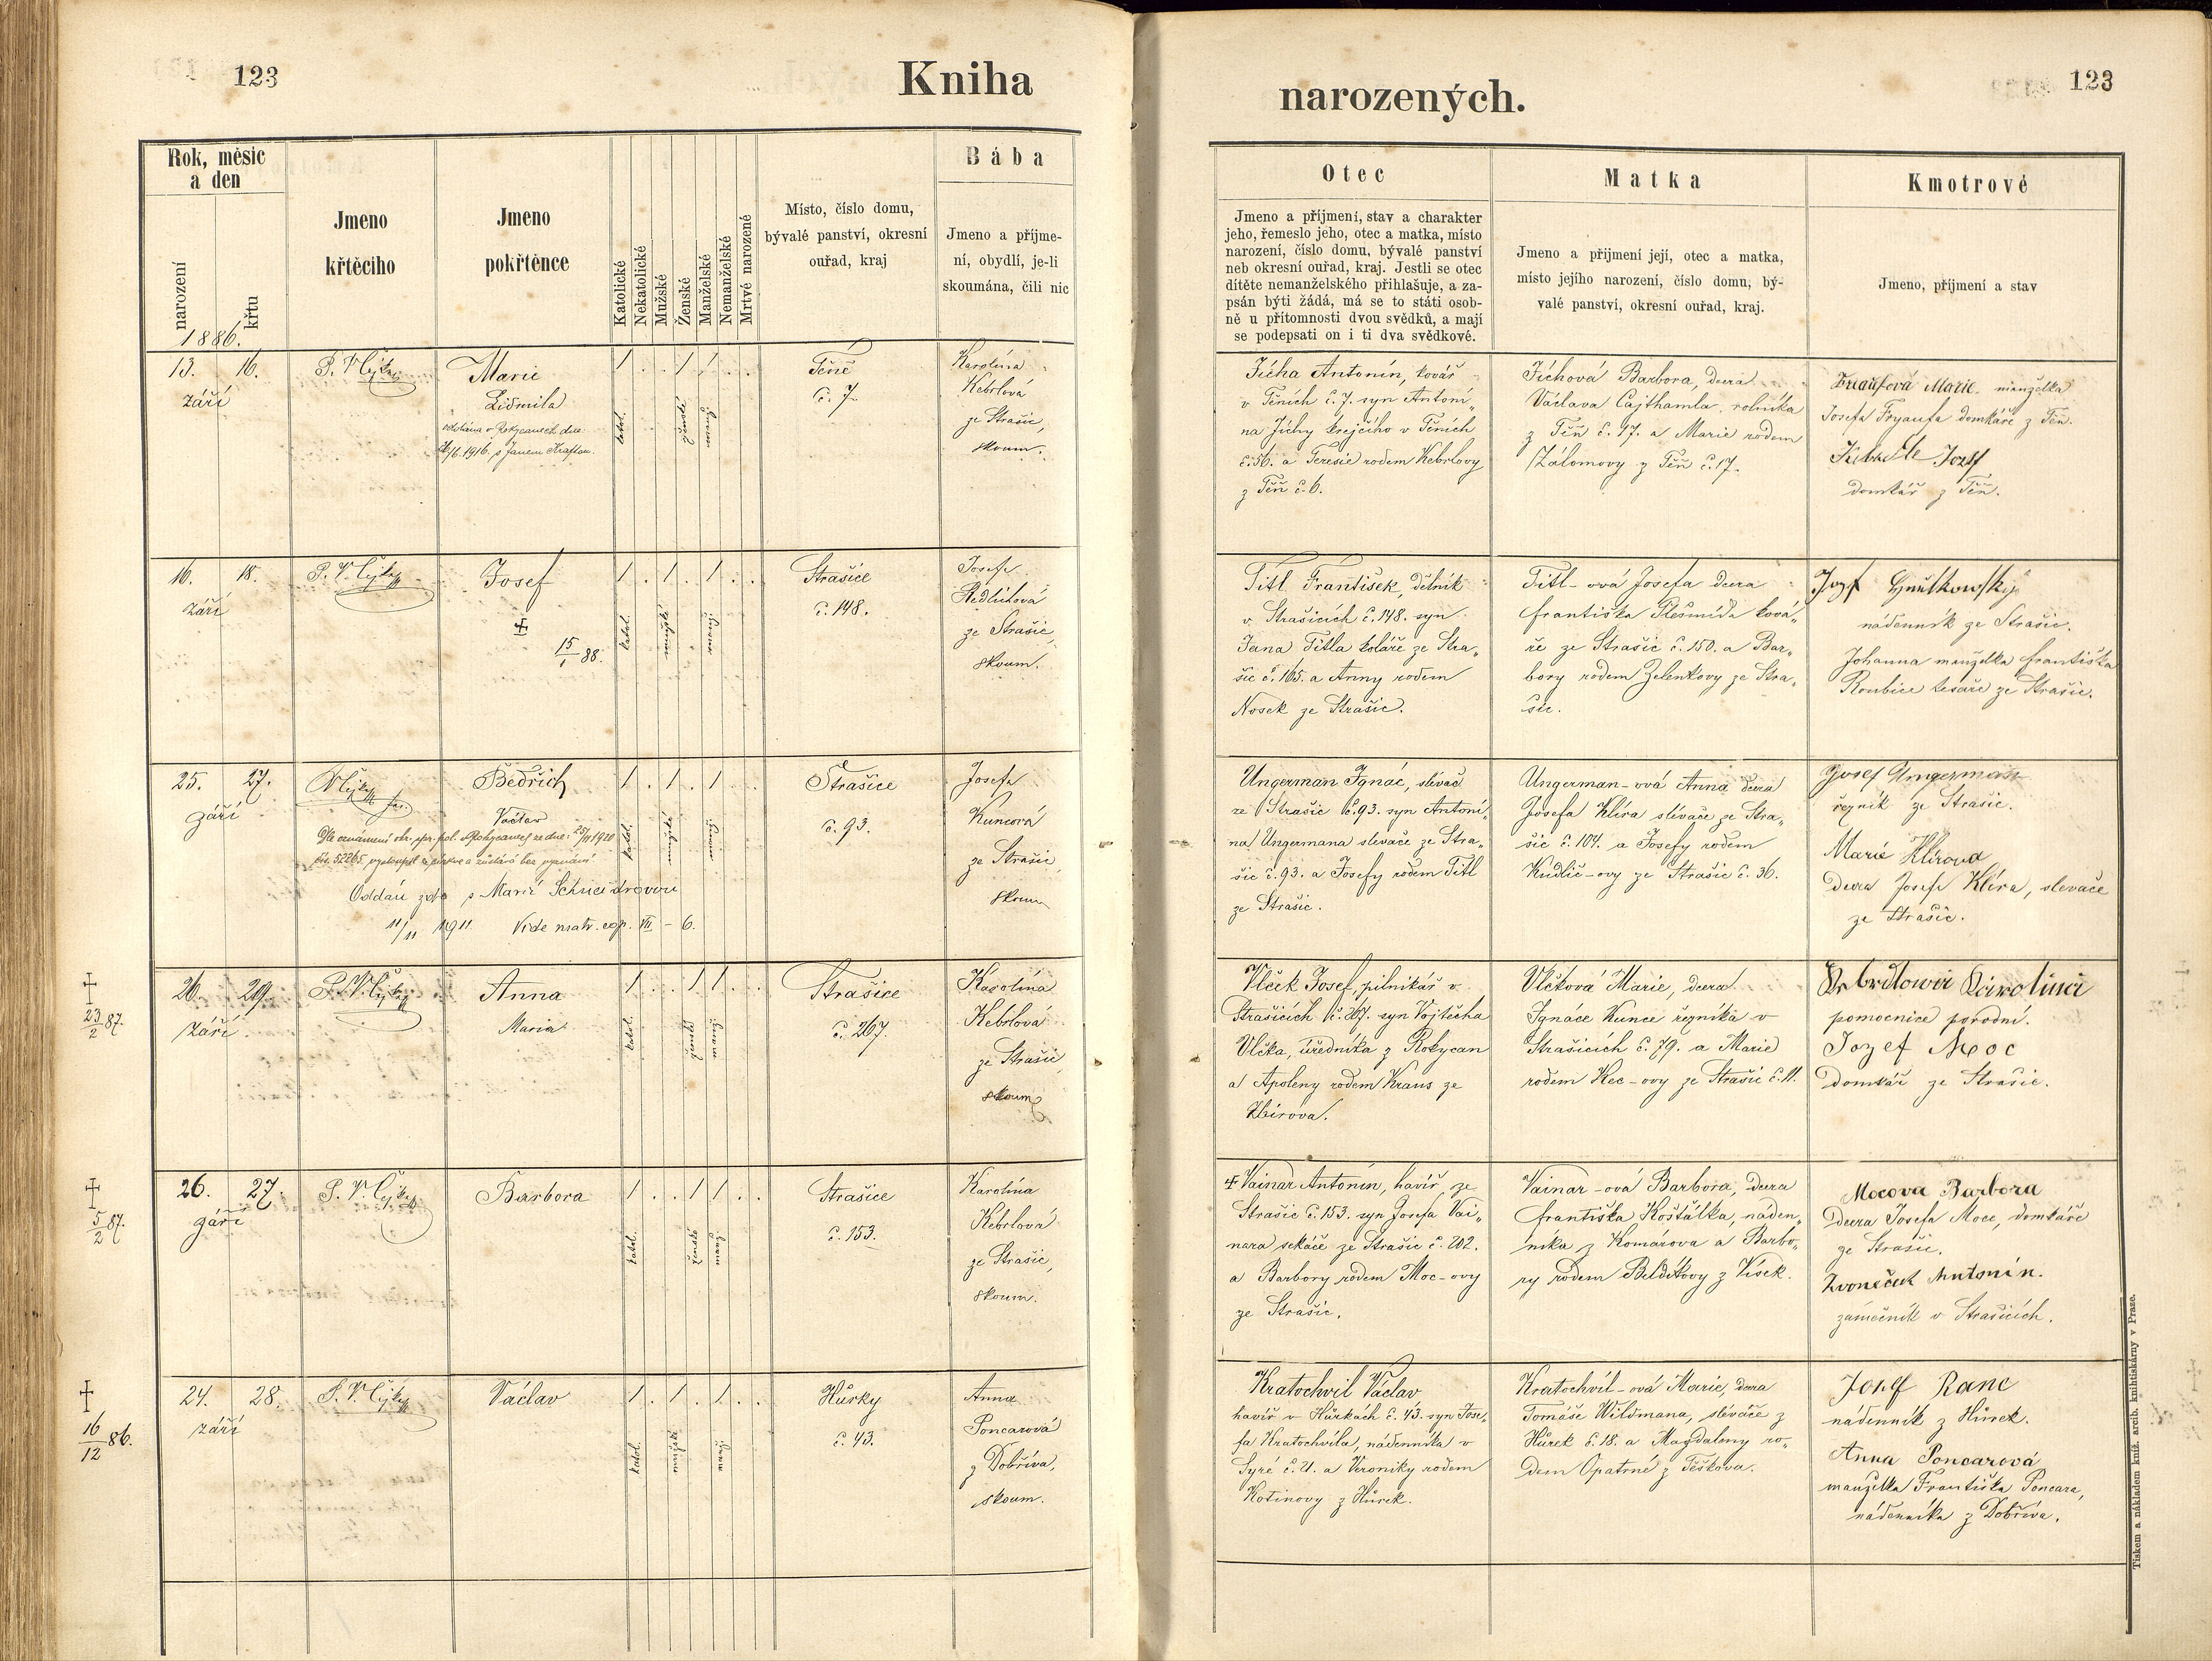 123
Kniha
narozených.
123
Rok, měsíc
a den
narození
křtu
1886.
Jmeno
křtěcího
Jmeno
pokřtěnce
Katolické
Nekatolické
Mužské
Ženské
Manželské
Nemanželské
Mrtvé narozené
Místo, číslo domu,
bývalé panství, okresní
ouřad, kraj
Bába
Jmeno a příjme-
ní, obydlí, je-li
skoumána, čili nic
Otec
Jmeno a příjmení, stav a charakter
jeho, řemeslo jeho, otec a matka, místo
narození, číslo domu, bývalé panství
neb okresní ouřad, kraj. Jestli se otec
dítěte nemanželského přihlašuje, a za-
psán býti žádá, má se to státi osob-
ně u přítomnosti dvou svědků, a mají
se podepsati on i ti dva svědkové.
Matka
Jmeno a přijmení její, otec a matka,
místo jejího narození, číslo domu, bý-
valé panství, okresní ouřad, kraj.
Kmotrové
Jmeno, příjmení a stav
13. 16.
září
Marie
Lidmila
oddána v Rokycanech dne
1916. s Janem Kraftem.
katol.
ženské
Těně
č. 7.
Karolína
Kebrlová
ze Strašic,
skoum.
Jícha Antonín, kovář
v Těních č. 7. syn Antoní„
na Jíchy krejčího v Těních
č. 56. a Teresie rodem Kebrlovy
z Těň č. 6.
Jíchová Barbora, dcera
Václava Cajthamla, rolníka
z Těň č. 17. a Marie rodem
Zálomovy z Těň č. 17.
Marie manželka
Josefa Fryaufa domkáře z Těň.
Jozef
domkář z Těň.
16. 18.
září
Josef
15/1 88.
katol.
Strašice
č. 148.
Josefa
Hedlichová
ze Strašic,
skoum.
Titl František, dělník
v Strašicích č. 148. syn
Jana Titla koláře ze Stra„
šic č. 165. a Anny rodem
Nosek ze Strašic.
Titl-ová Josefa dcera
Františka Plešmída ková„
ře ze Strašic č. 150. a Bar„
bory rodem Zelenkovy ze Stra„
šic.
Jozf
nádenník ze Strašic.
Johanna manželka Františka
Roubice tesaře ze Strašic.
25. 27.
září
Bedřich
Václav
Oddán zde s Marií Schneidrovou
11/11 1911 Vide matr. cop. VII - 6.
katol.
Strašice
č. 93.
Josefa
Kuncová
ze Strašic
skoum
Ungerman Ignác, slévač
ze Strašic č. 93. syn Antoní„
na Ungermana slevače ze Stra„
šic č. 93. a Josefy rodem Titl
ze Strašic.
Ungerman-ová Anna dcera
Josefa Klíra slévače ze Stra„
šic č. 104. a Josefy rodem
Kudlič-ovy ze Strašic č. 36.
Josef Ungerman
řezník ze Strašic.
Marie Klírova
Dcera Josefa Klíra, slevače
ze Strašic.
23/2 87.
26. 29.
září
Anna
Maria
katol.
ženské
Strašice
č. 267.
Karolína
Kebrlová
ze Strašic
skoum
Vlček Josef, pilníkář v
Strašicích č. 267. syn Vojtěcha
Vlčka, úředníka z Rokycan
a Apoleny rodem Kraus ze
Zbirova.
Vlčková Marie, dcera
Ignáce Kunce řezníka v
Strašicích č. 79. a Marie
rodem Kec-ovy ze Strašic č. 11.
pomocnice porodní.
Jozef Moc
domkář ze Strašic.
5/2 87.
26. 27.
září
Barbora
katol.
ženské
Strašice
č. 153.
Karolína
Kebrlová
ze Strašic,
skoum.
Vainar Antonín, havíř ze
Strašic č. 153. syn Josefa Vai„
nara sekáče ze Strašic č. 202.
a Barbory rodem Moc-ovy
ze Strašic.
Vainar-ová Barbora, dcera
Františka Košťálka, náden„
níka z Komárova a Barbo„
ry rodem Beldíkovy z Vísek.
Mocova Barbora
Dcera Josefa Moce, domkáře
ze Strašic.
Zvoneček Antonín.
zámečník v Strašicích.
16/12 86.
24. 28.
září
Václav
katol.
mužské
Hůrky
č. 43.
Anna
Poncarová
z Dobříva,
skoum.
Kratochvíl Václav
havíř v Hůrkách č. 43. syn Jose„
fa Kratochvíla, nádenníka v
Syré č. 21. a Veroniky rodem
Kotinovy z Hůrek.
Kratochvíl-ová Marie, dcera
Tomáše Wildmana, slévače z
Hůrek č. 18. a Magdaleny ro„
dem Opatrné z Těškova.
Josef Ranc
nádenník z Hůrek.
Anna Poncarová
manželka Františka Poncara,
nádenníka z Dobříva.
Tiskem a nákladem kníž. arcib. knihtiskárny v Praze.